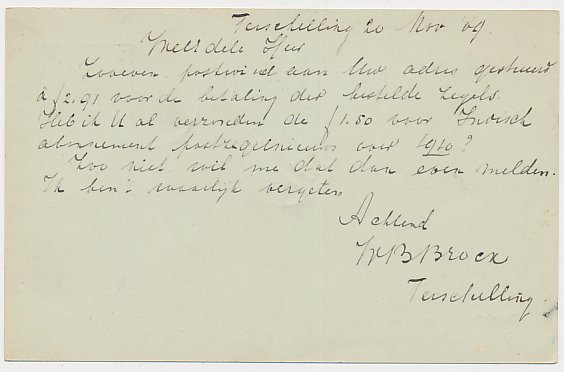 Terschelling 20 Nov 09.
WelEdele Heer
Zooeven postwissel aan Uw adres gestuurd
à ƒ2.91 voor de betaling der bestelde zegels.
Heb ik U al verzonden de ƒ1.50 voor Indisch
abonnement postzegelnieuws voor 1910?
Zoo niet, wil me dat dan even melden.
Ik ben 't waarlijk vergeten
Achtend
WBBrocx
Terschelling.